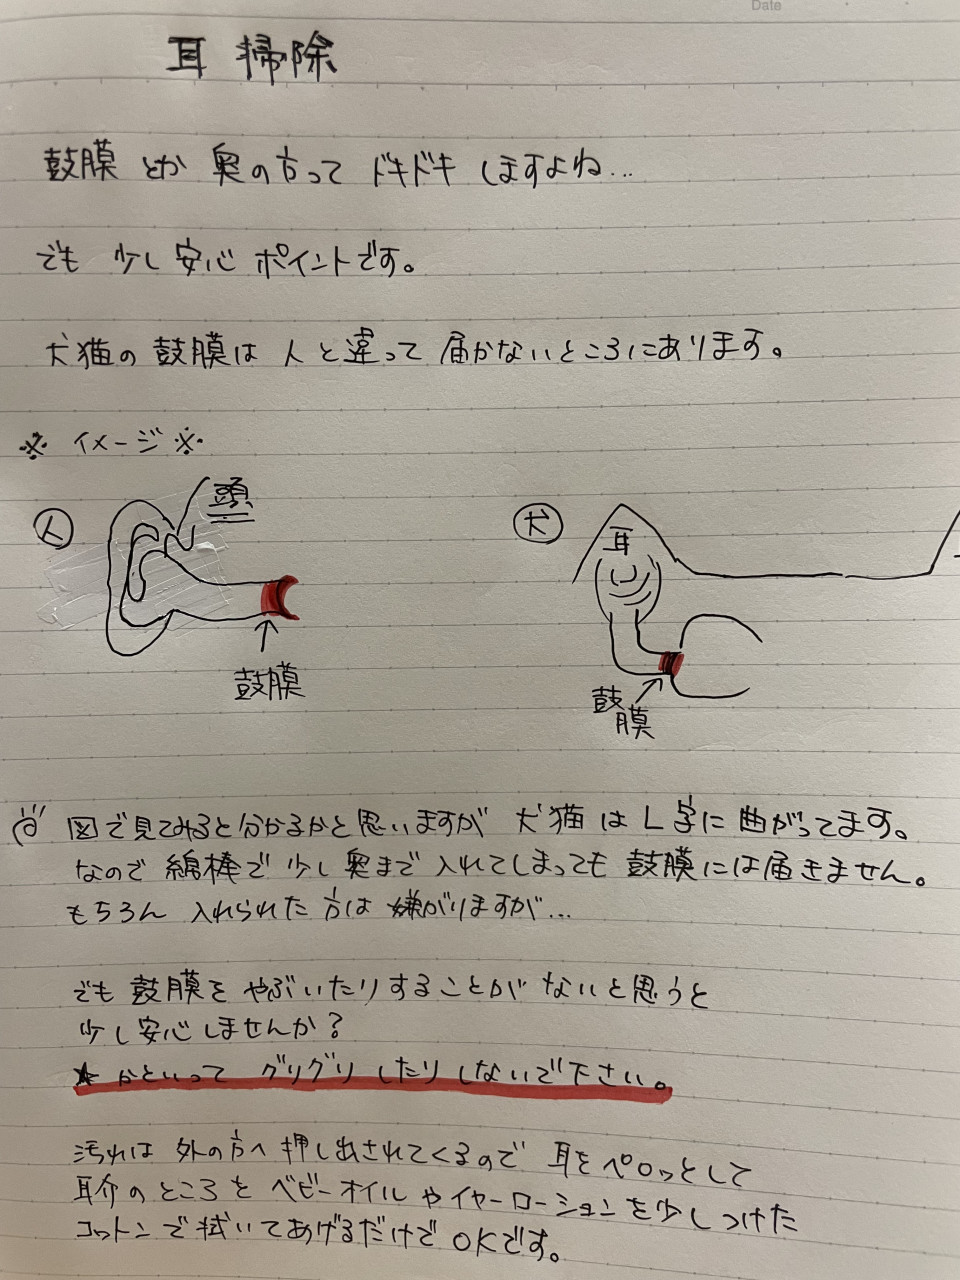 Date
耳掃除
鼓膜とか奥の方ってドキドキしますよね…
でも少し安心ポイントです。
犬猫の鼓膜は人と違って届かないところにあります。
※イメージ※
人
頭
鼓膜
犬
耳
鼓膜
図で見てみると分かるかと思いますが犬猫はL字に曲がってます。
なので綿棒で少し奥まで入れてしまっても鼓膜には届きません。
もちろん入れられた方は嫌がりますが…
でも鼓膜をやぶいたりすることがないと思うと
少し安心しませんか?
★かといってグリグリしたりしないで下さい。
汚れは外の方へ押し出されてくるので耳をペロッとして
耳介のところをベビーオイルやイヤーローションを少しつけた
コットンで拭いてあげるだけでOKです。